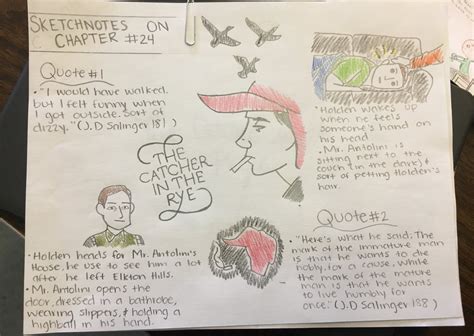 SKETCHNOTES ON
CHAPTER #24
Quote #1
• "I would have walked,
but I felt funny when
I got outside. Sort of
dizzy." (J.D Salinger 181)
THE
CATCHER
IN THE
RYE
• Holden heads for Mr. Antolini's
House, he use to see him a lot
after he left Elkton Hills.
• Mr. Antolini opens the
door, dressed in a bathrobe,
wearing slippers, & holding a
highball in his hand.
• Holden wakes up
when he feels
someone's hand on
his head
• Mr. Antolini is
sitting next to the
couch (in the dark) &
sort of petting Holden's
hair.
Quote #2
• "Here's what he said: The
mark of the immature man
is that he wants to die
nobly, for a cause, while
the mark of the mature
man is that he wants
to live humbly for
once." (J.D Salinger 188)